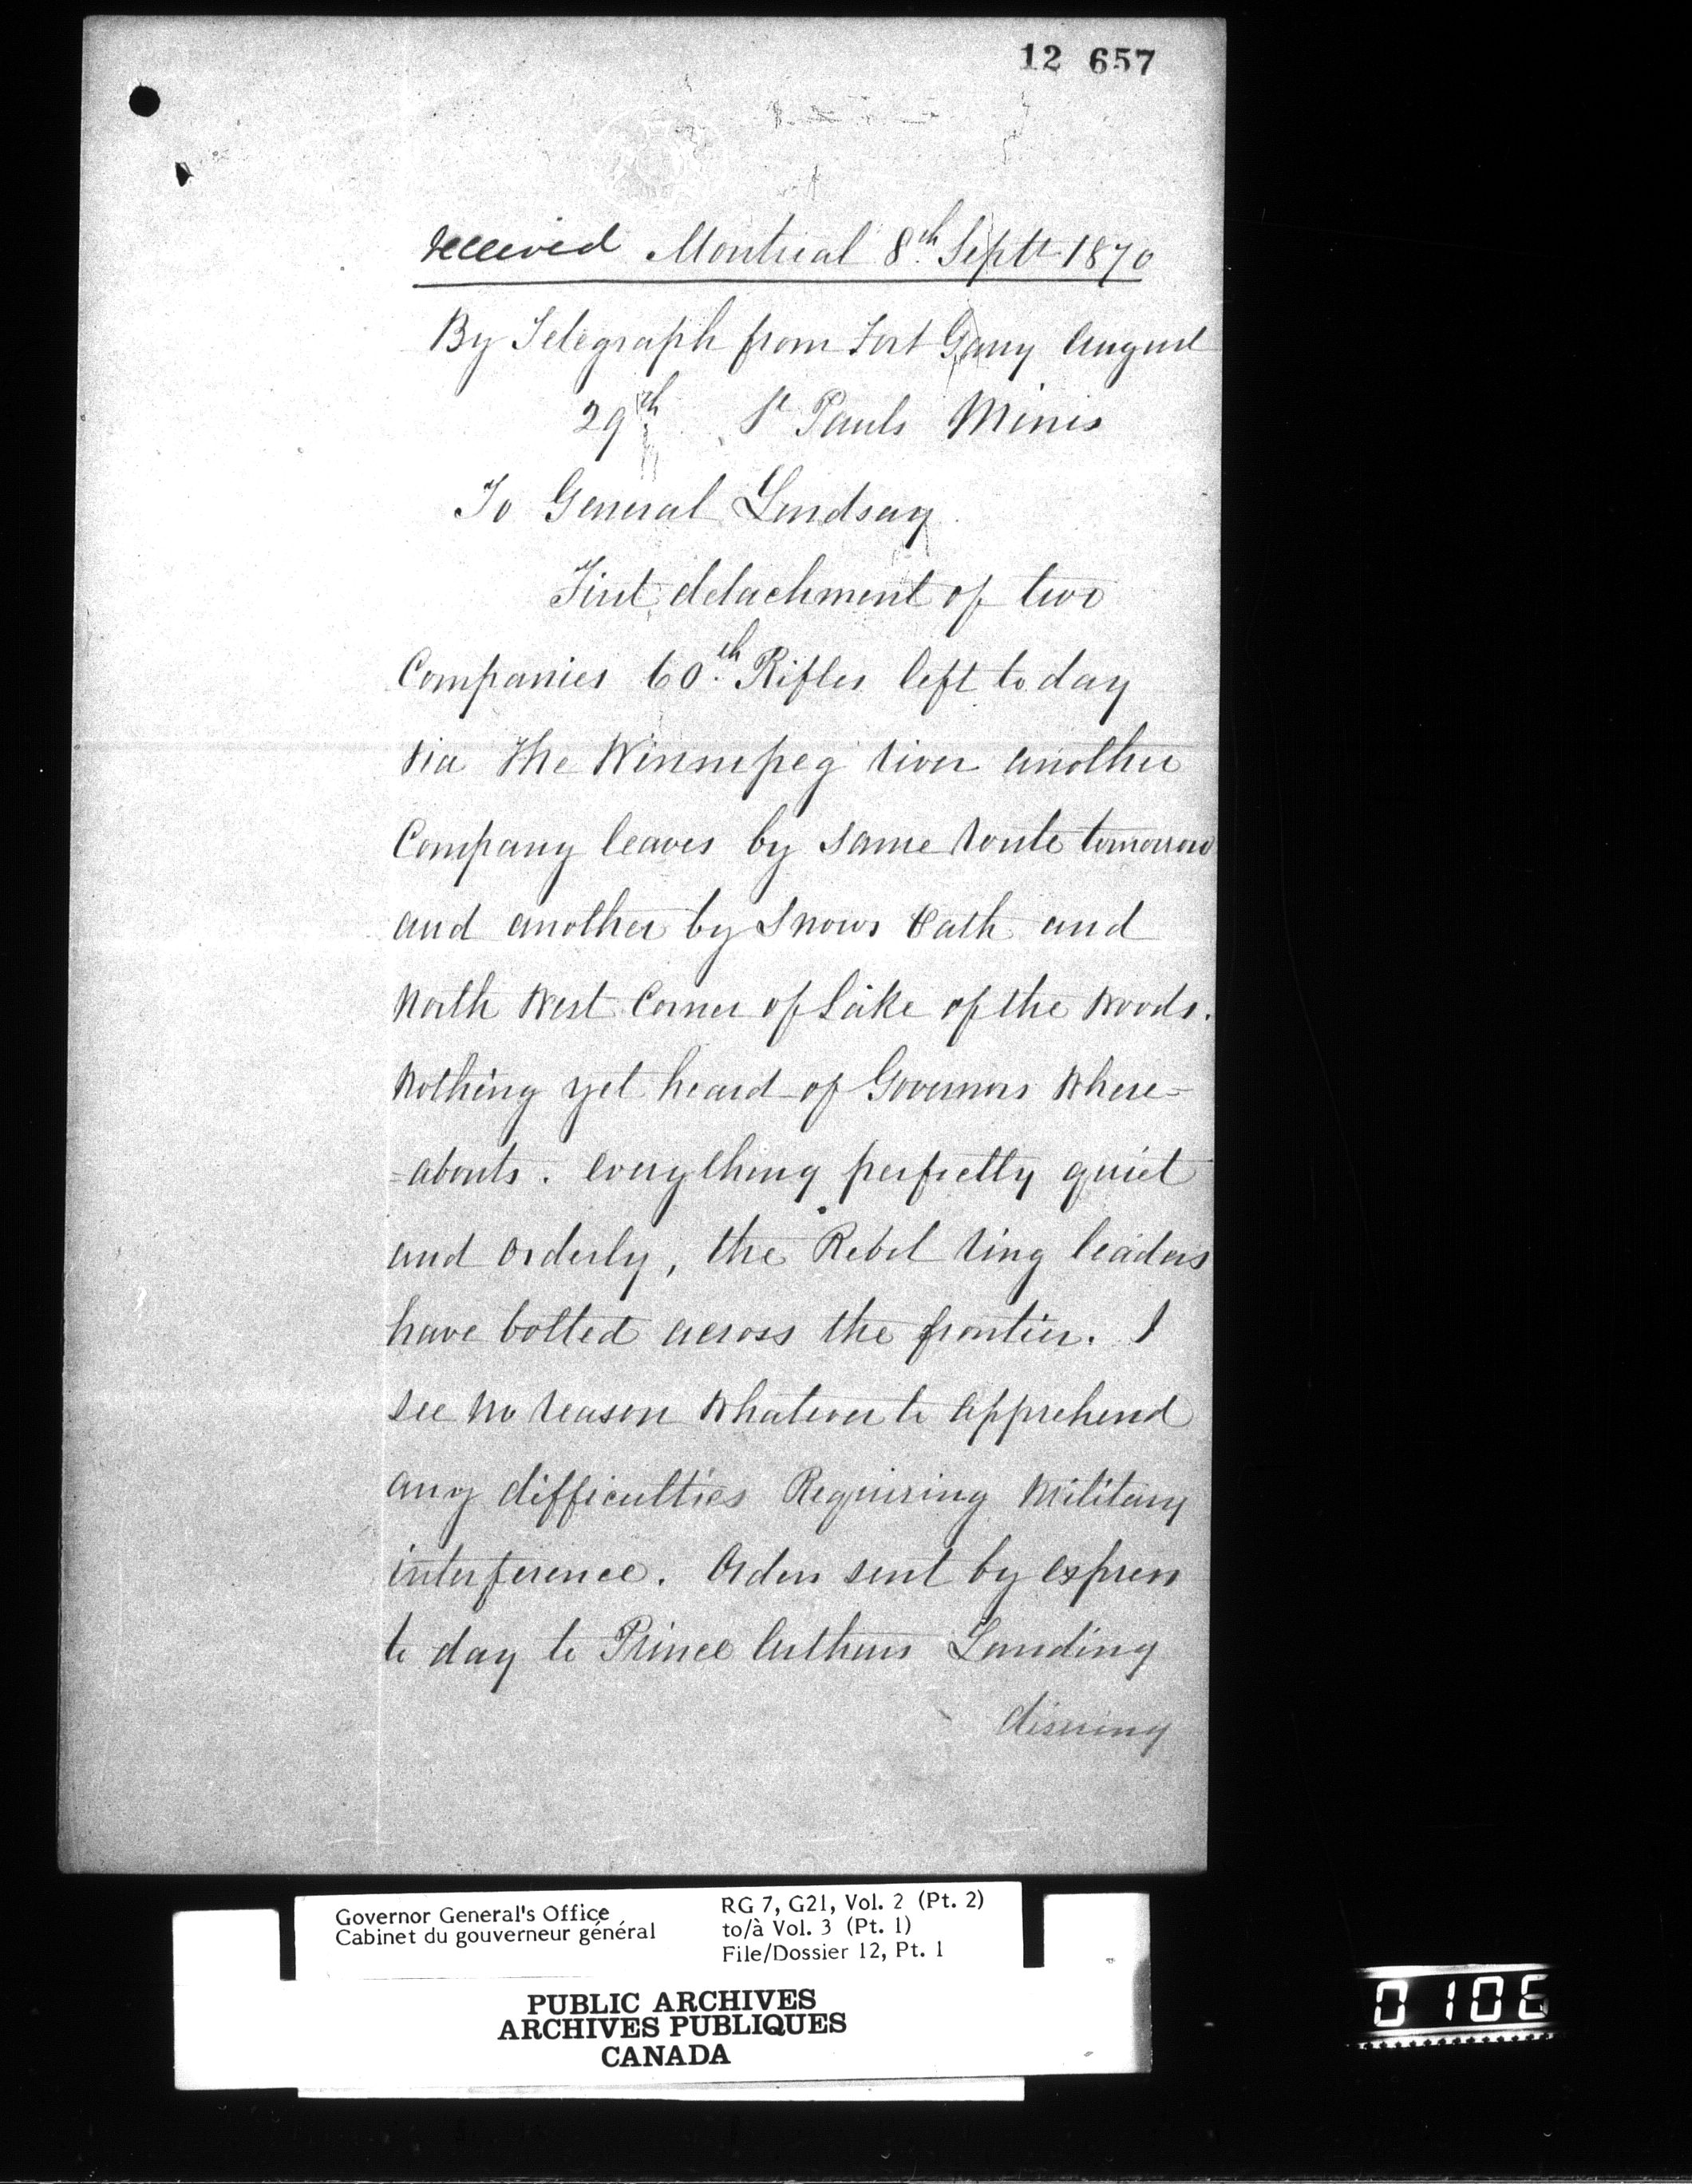 12 657
received Montreal 8th Septr 1870
By Telegraph from Fort Garry August
29th St Pauls Minis
To General Lindsay
First detachment of two
Companies 60th Rifles left to day
via the Winnipeg river another
Company leaves by same route tomorrow
and another by Snows Path and
North West Corner of Lake of the Woods.
Nothing yet heard of Governors where=
=abouts. everything perfectly quiet
and orderly, the Rebel ring leaders
have bolted across the frontier. I
see no reason whatever to apprehend
any difficulties Requiring Military
interference. Orders sent by express
to day to Prince Arthurs Landing
Governor General's Office
Cabinet du gouverneur général
RG 7, G21, Vol. 2 (Pt. 2)
to/à Vol. 3 (Pt. 1)
File/Dossier 12, Pt. 1
PUBLIC ARCHIVES
ARCHIVES PUBLIQUES
CANADA
0106